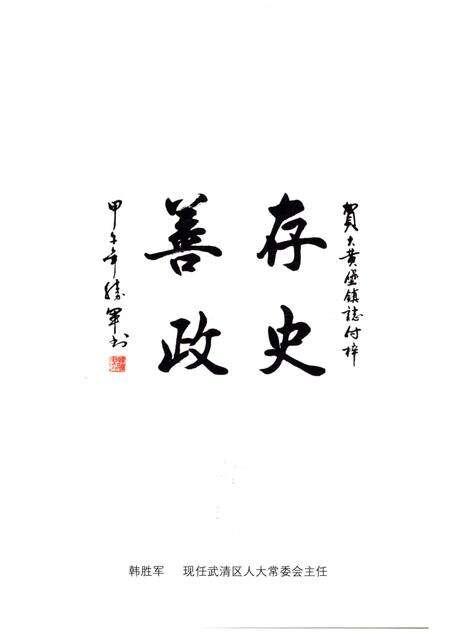 賀大黄堡鎮誌付梓
存史
善政
甲午年勝軍书
韩胜军 现任武清区人大常委会主任